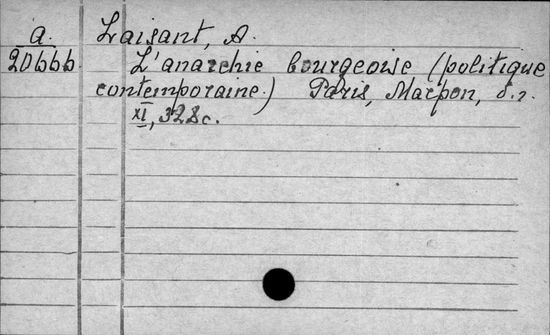 a. Laisant, A.
20666 L'anarchie bourgeoise (politique
contemporaine.) Paris, Marpon, s.a.
XI, 328c.